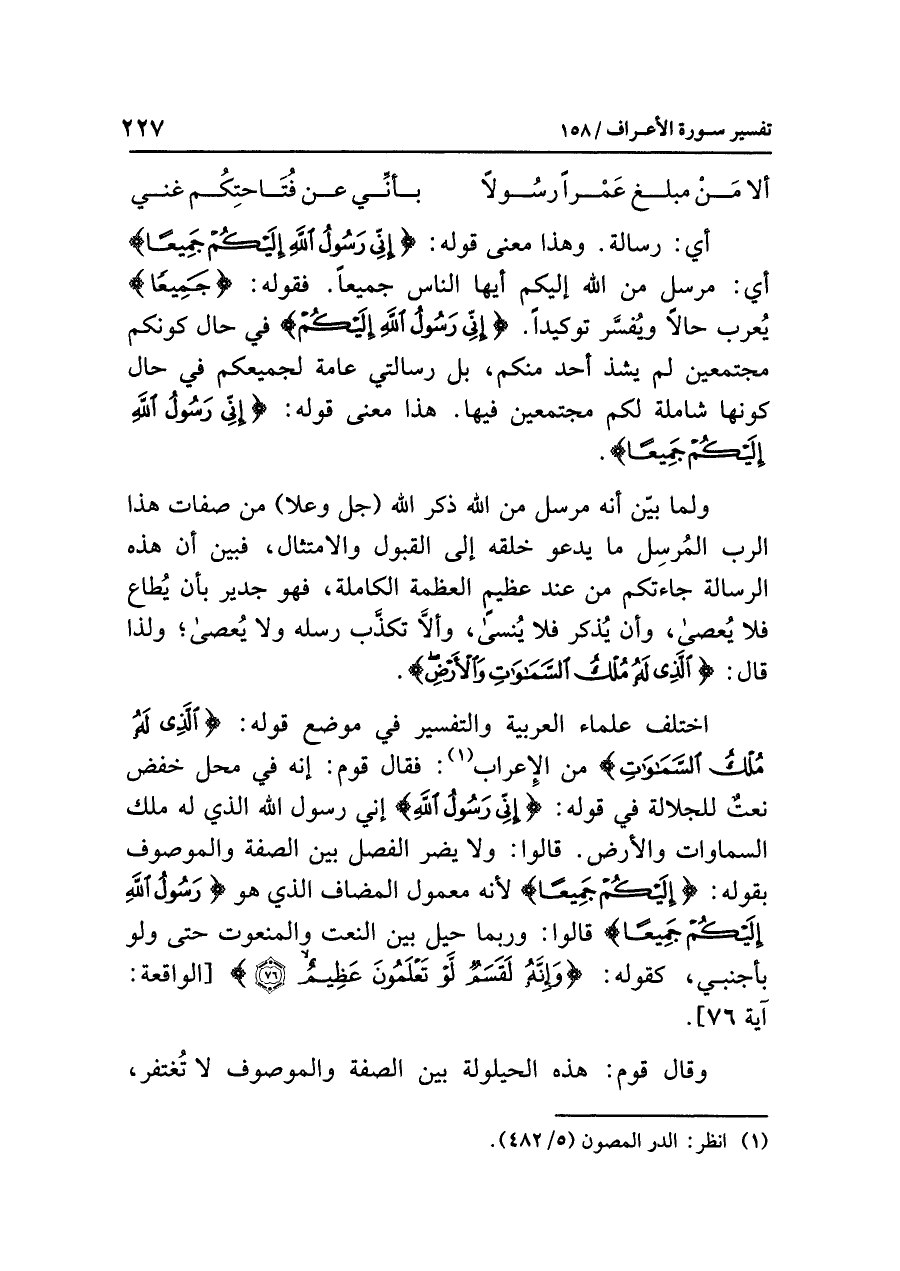 تفسير سورة الأعراف / ١٥٨ ٢٢٧
ألا مَنْ مبلغ عَمْراً رسُولاً بأنِّي عن فُتَاحتِكُم غني
أي: رسالة. وهذا معنى قوله: ﴿إِنِّي رَسُولُ ٱللَّهِ إِلَيْكُمْ جَمِيعًا﴾
أي: مرسل من الله إليكم أيها الناس جميعاً. فقوله: ﴿جَمِيعًا﴾
يُعرب حالاً ويُفسَّر توكيداً. ﴿إِنِّي رَسُولُ ٱللَّهِ إِلَيْكُمْ﴾ في حال كونكم
مجتمعين لم يشذ أحد منكم، بل رسالتي عامة لجميعكم في حال
كونها شاملة لكم مجتمعين فيها. هذا معنى قوله: ﴿إِنِّي رَسُولُ ٱللَّهِ
إِلَيْكُمْ جَمِيعًا﴾.
ولما بيّن أنه مرسل من الله ذكر الله (جل وعلا) من صفات هذا
الرب المُرسِل ما يدعو خلقه إلى القبول والامتثال، فبين أن هذه
الرسالة جاءتكم من عند عظيمٍ العظمة الكاملة، فهو جدير بأن يُطاع
فلا يُعصىٰ، وأن يُذكر فلا يُنسىٰ، وألاَّ تكذَّب رسله ولا يُعصىٰ؛ ولذا
قال: ﴿ٱلَّذِى لَهُۥ مُلْكُ ٱلسَّمَٰوَٰتِ وَٱلْأَرْضِۖ﴾.
اختلف علماء العربية والتفسير في موضع قوله: ﴿ٱلَّذِى لَهُۥ
مُلْكُ ٱلسَّمَٰوَٰتِ﴾ من الإعراب(١): فقال قوم: إنه في محل خفض
نعتٌ للجلالة في قوله: ﴿إِنِّي رَسُولُ ٱللَّهِ﴾ إني رسول الله الذي له ملك
السماوات والأرض. قالوا: ولا يضر الفصل بين الصفة والموصوف
بقوله: ﴿إِلَيْكُمْ جَمِيعًا﴾ لأنه معمول المضاف الذي هو ﴿رَسُولُ ٱللَّهِ
إِلَيْكُمْ جَمِيعًا﴾ قالوا: وربما حيل بين النعت والمنعوت حتى ولو
بأجنبي، كقوله: ﴿وَإِنَّهُۥ لَقَسَمٌ لَّوْ تَعْلَمُونَ عَظِيمٌ ۝٧٦﴾ [الواقعة:
آية ٧٦].
وقال قوم: هذه الحيلولة بين الصفة والموصوف لا تُغتفر،
(١) انظر: الدر المصون (٥/ ٤٨٢).